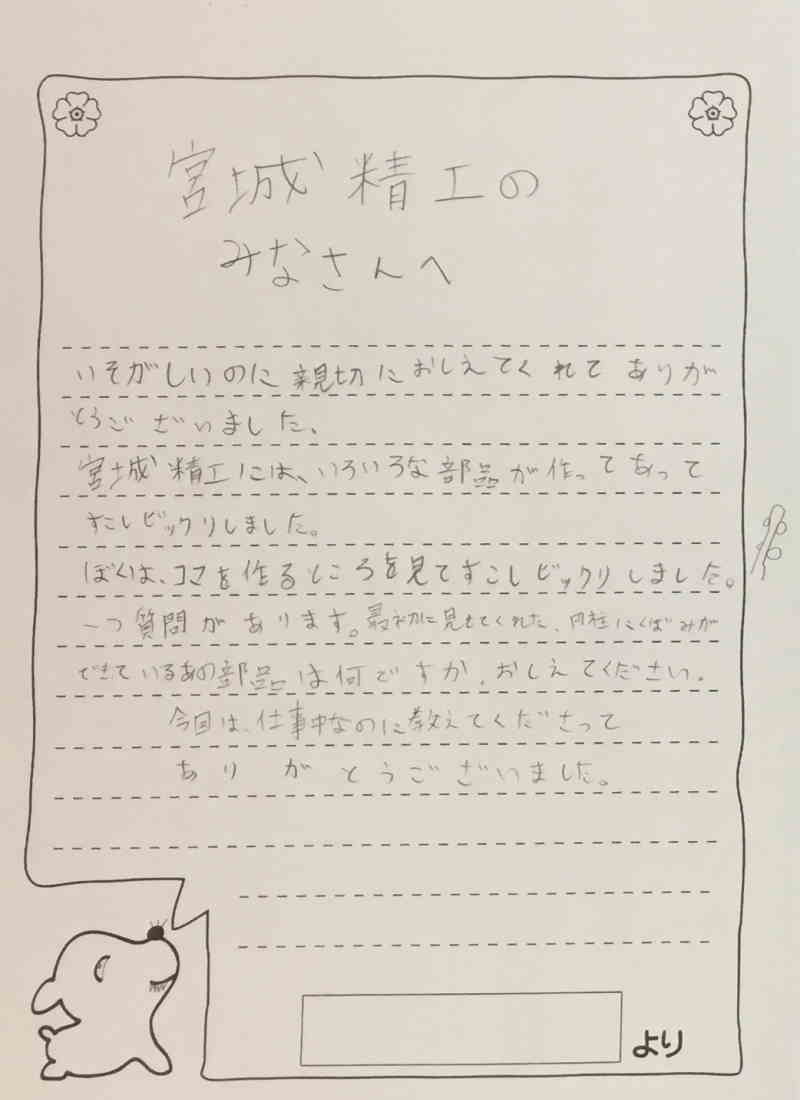 宮城精工の
みなさんへ
いそがしいのに親切におしえてくれてありが
とうございました、
宮城精工には、いろいろな部品が作ってあって
すこしビックリしました。
ぼくは、コマを作るところを見てすこしビックリしました。
一つ質問があります。最初に見せてくれた、円柱にくぼみが
できているあの部品は何ですか、おしえてください。
今回は、仕事中なのに教えてくださって
ありがとうございました。
より